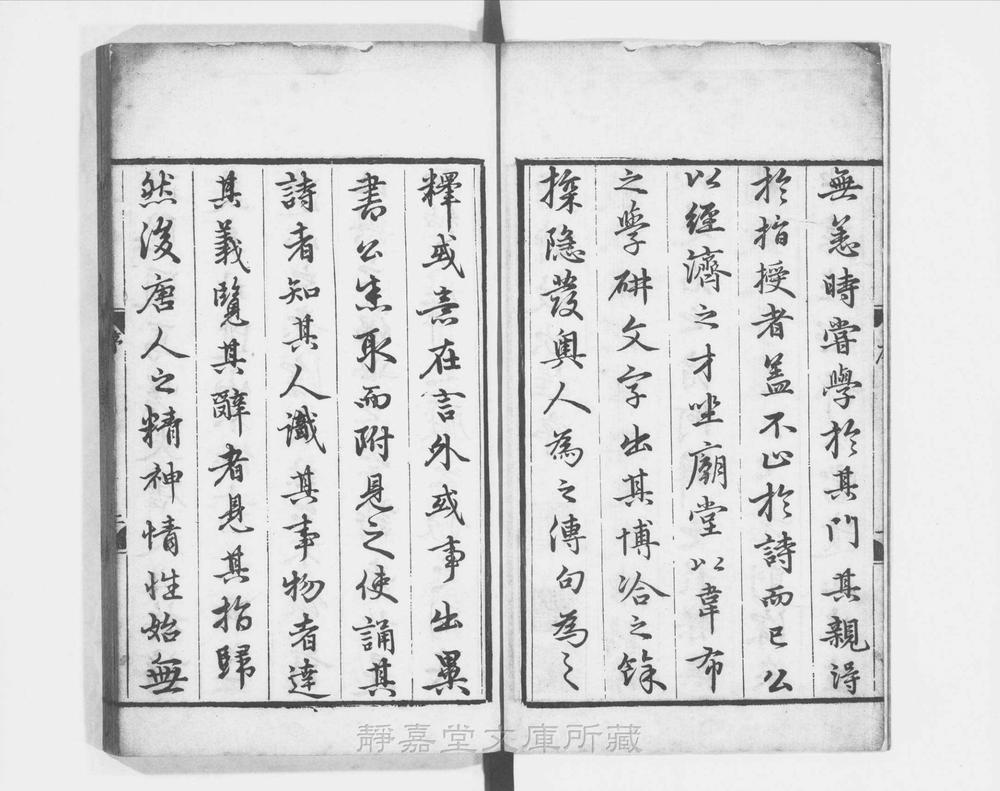 無恙時嘗學於其門其親得
於指授者蓋不止於詩而已公
以經濟之才坐廟堂以韋布
之學研文字出其博洽之餘
探隱發奧人為之傳句為之
釋或意在言外或事出異
書公悉取而附見之使誦其
詩者知其人識其事物者達
其義覽其辭者見其指歸
然後唐人之精神情性始無
靜嘉堂文庫所藏